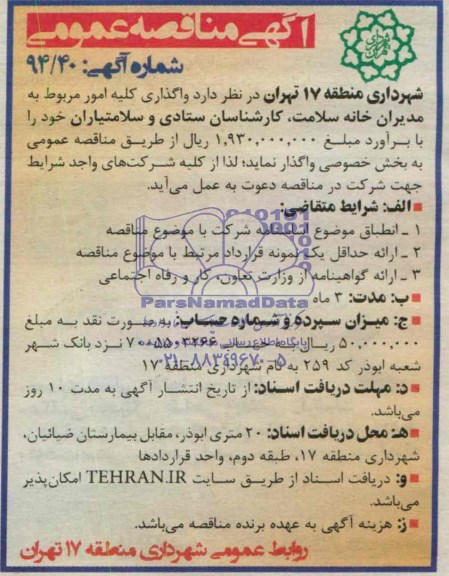 آگهی مناقصه عمومی
شماره آگهی: ۹۴/۴۰
شهرداری منطقه ۱۷ تهران در نظر دارد واگذاری کلیه امور مربوط به
مدیران خانه سلامت، کارشناسان ستادی و سلامتیاران خود را
با برآورد مبلغ ۱,۹۳۰,۰۰۰,۰۰۰ ریال از طریق مناقصه عمومی
به بخش خصوصی واگذار نماید؛ لذا از کلیه شرکت‌های واجد شرایط
جهت شرکت در مناقصه دعوت به عمل می‌آید.
الف: شرایط متقاضی:
۱ ـ انطباق موضوع اساسنامه شرکت با موضوع مناقصه
۲ ـ ارائه حداقل یک نمونه قرارداد مرتبط با موضوع مناقصه
۳ ـ ارائه گواهینامه از وزارت تعاون، کار و رفاه اجتماعی
ب: مدت: ۳ ماه
ParsNamadData
ج: میزان سپرده و شماره حساب: به صورت نقد به مبلغ
۵۰,۰۰۰,۰۰۰ ریال به حساب نزد بانک شهر
شعبه ابوذر کد ۲۵۹ به نام شهرداری منطقه ۱۷
۰۲۱-۸۸۳۴۹۶۷۰-۵
د: مهلت دریافت اسناد: از تاریخ انتشار آگهی به مدت ۱۰ روز
می‌باشد.
هـ: محل دریافت اسناد: ۲۰ متری ابوذر، مقابل بیمارستان ضیائیان،
شهرداری منطقه ۱۷، طبقه دوم، واحد قراردادها
و: دریافت اسناد از طریق سایت TEHRAN.IR امکان‌پذیر
می‌باشد.
ز: هزینه آگهی به عهده برنده مناقصه می‌باشد.
روابط عمومی شهرداری منطقه ۱۷ تهران